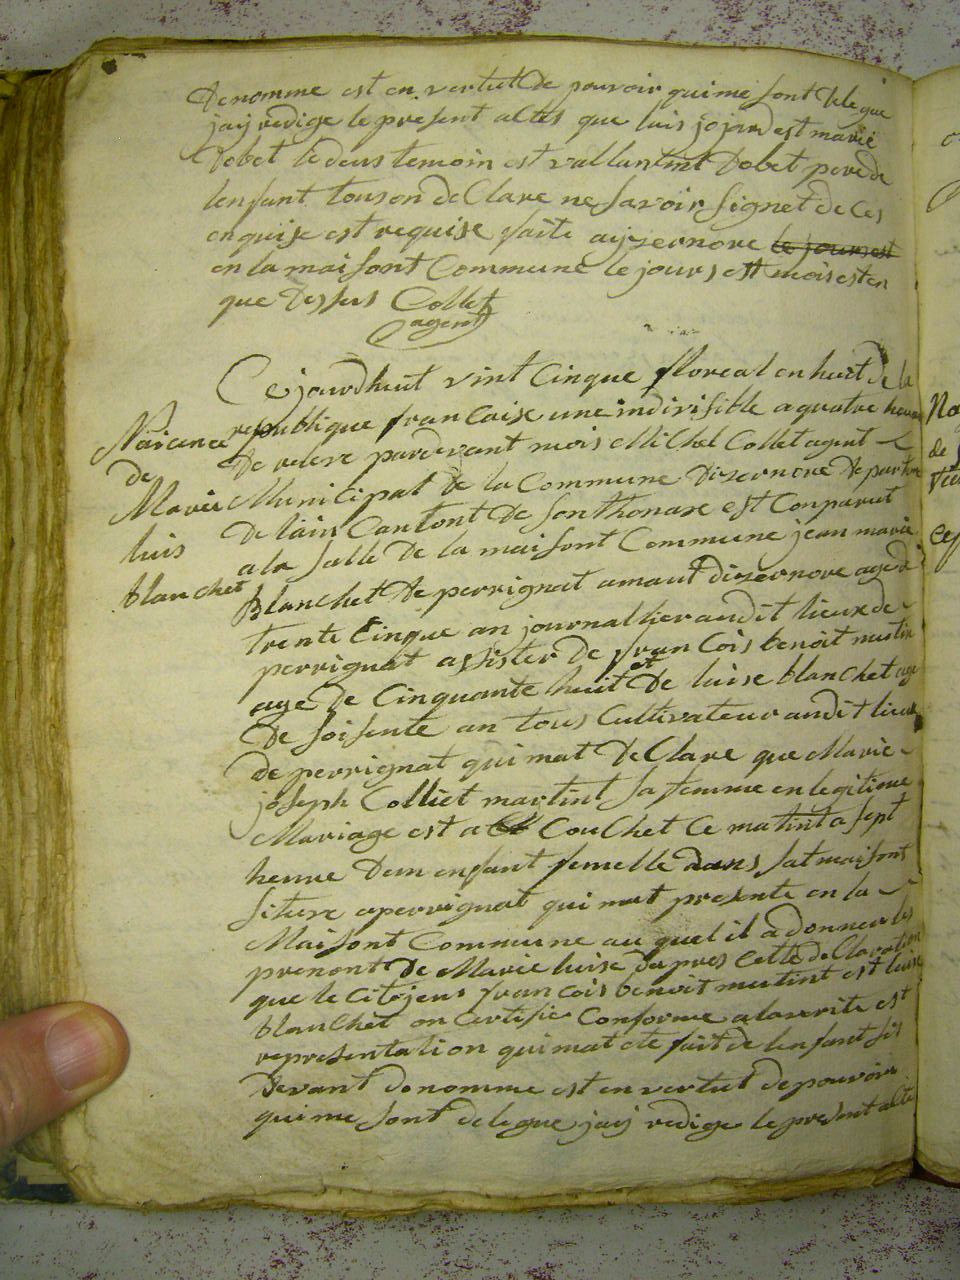 denomme est en vertut de pouvoir qui me sont delegue
jaij redige le present altes que luis jojard est marie
dobet le deus temoin est vallantint dobet pere de
lenfant touson de Clare ne savoir signet de ces
enquise est requise faite aijzernore le jours est
en la maisont Commune le jours est mois est en
que dessus Collet
agent
Ce jourdhuit vint Cinque floreal en huit de la
republique francaise une indivisible a quatre heure
de releve pardevant mois Michel Collet agent
Municipal de la Commune dizernore departem
de lain Cantont de sonthonax est Conparut
a la salle de la maisont Commune jean marie
Blanchet de perrignat amaut dizernore age de
trente Cinque an journallier audit lieux de
perrignat assister de francois benoit mutin
age de Cinquante huit et de luise blanchet age
de soisente an tous Cultivateur audit lieux
de perrignat qui mat de Clare que Marie
joseph Colliet martint sa femme en legitime
Mariage est a Couchet Ce matint a sept
heure dun enfant femelle dans sat maisont
siture a perrignat qui mat presente en la
Maisont Commune au quel il a donner les
prenont de Marie luise dapres Cette de Claration
que le Citojens francois benoit mutint est luise
blanchet on Certifie Conforme a la verite est
representation qui mat ete fait de lenfant sis
devant denomme est en vertut de pouvoir
qui me sont delegue jaij redige le present alte
Naicence
de
Marie
luis
blanchet
Na
de